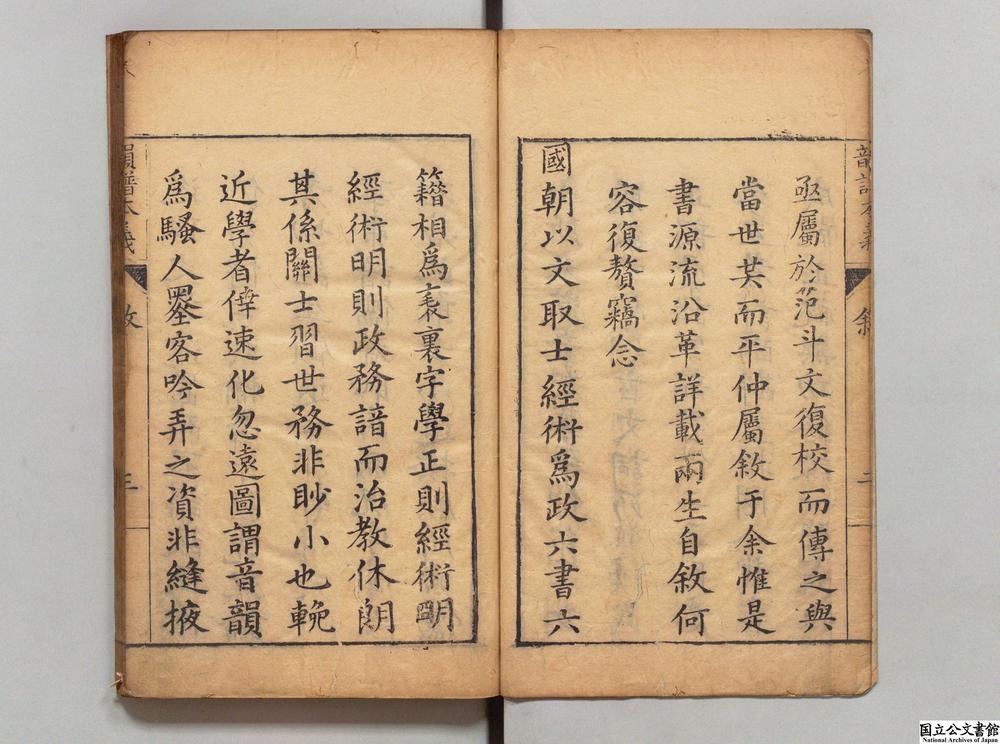 亟屬於范斗文復校而傳之與
當世共而平仲屬敘于余惟是
書源流沿革詳載兩生自敘何
容復贅竊念
國朝以文取士經術爲政六書六
敘
二
籍相爲表裏字學正則經術明
經術明則政務諳而治教休朗
其係關士習世務非眇小也輓
近學者倖速化忽遠圖謂音韻
爲騷人墨客吟弄之資非縫掖
韻譜本義
敘
三
国立公文書館
National Archives of Japan